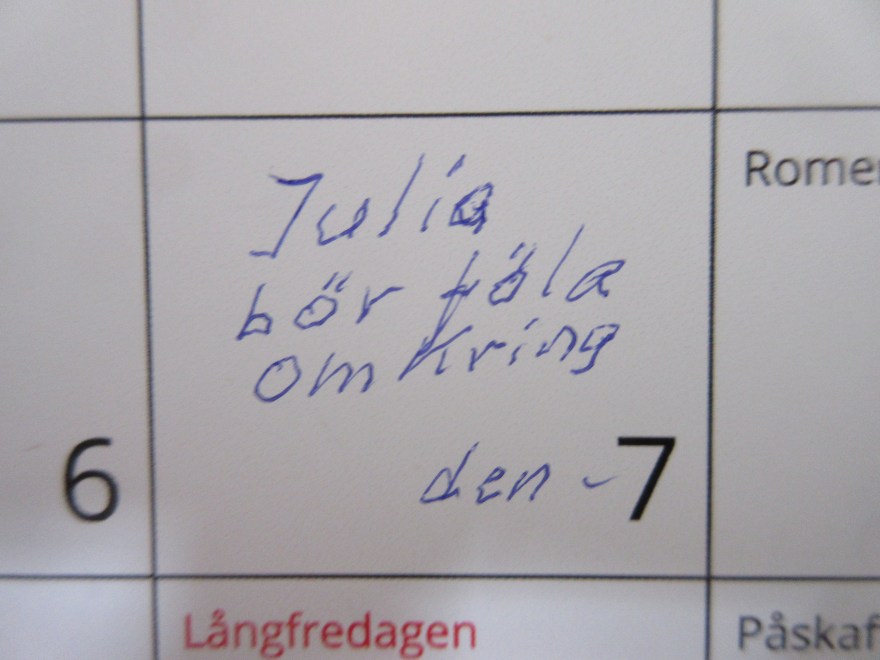 Julia
bör föla
omkring
den - 7
6
Romer
Långfredagen
Påskaf